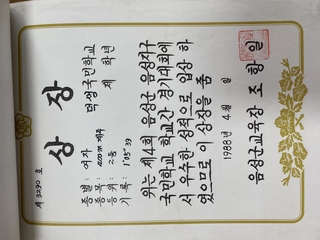 제 3290 호
상장
국민학교
제 학년
종별 : 여자
종목 : 400m 계주
등위 : 2등
기록 : 1'05"39
위는 제4회 음성군 음성지구
국민학교 학교간 경기대회에
서 우수한 성적으로 입상 하
였으므로 이 상장을 줌
1988년 4월 일
음성군교육장 조항일